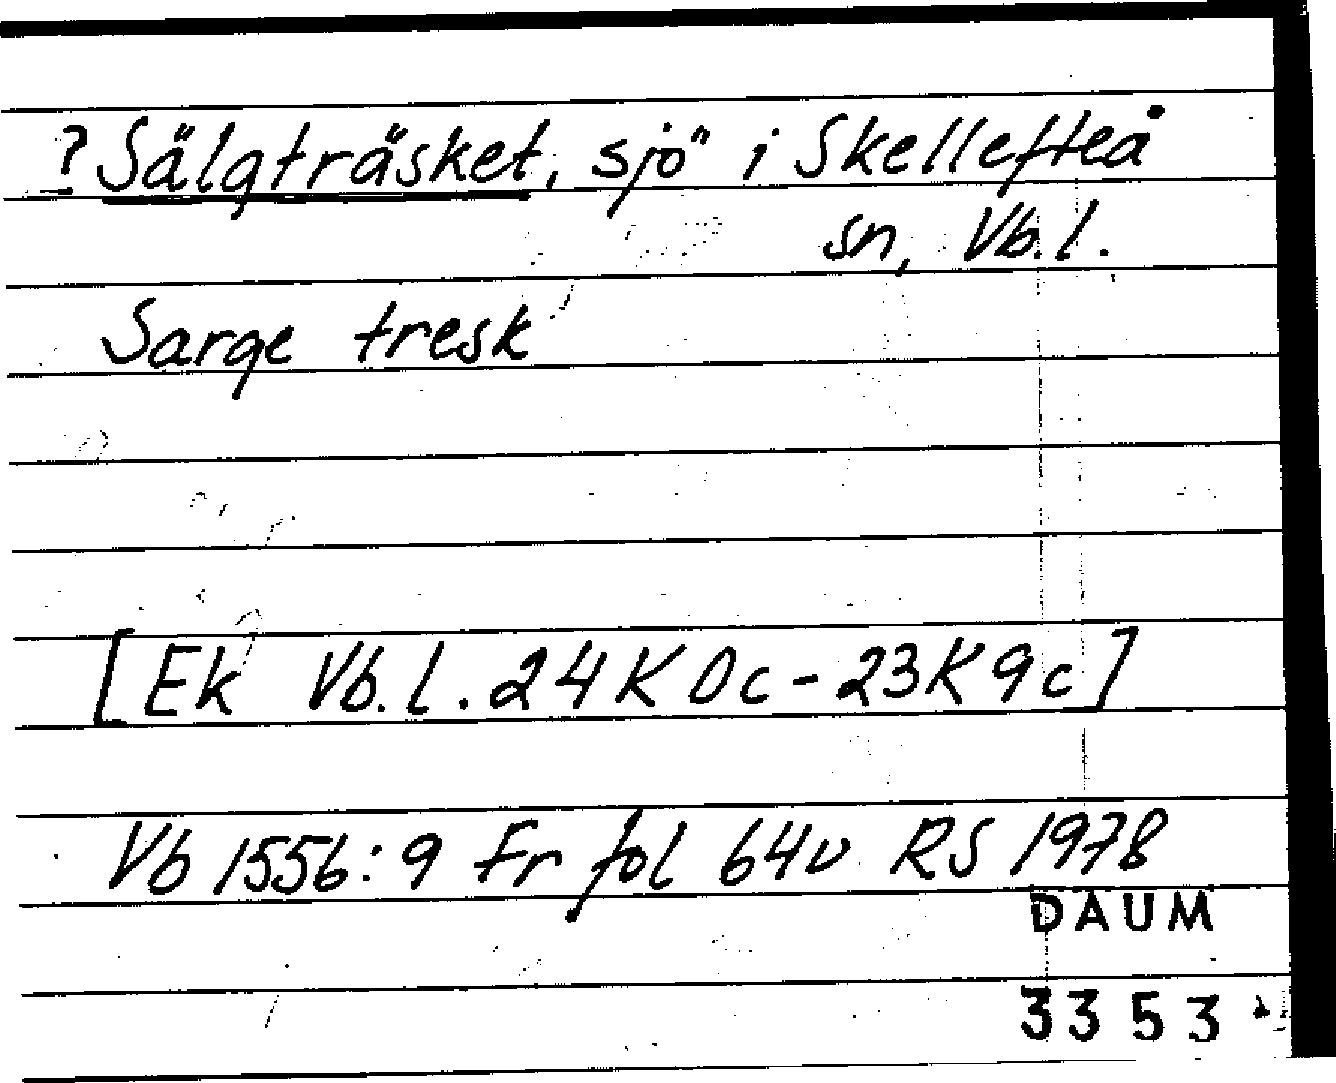 ? Sälgträsket, sjö i Skellefteå
sn, Vb.l.
Sarge tresk
[Ek Vb.l. 24K0c-23K9c]
Vb 1556:9 Fr fol 64v RS 1978
DAUM
3353